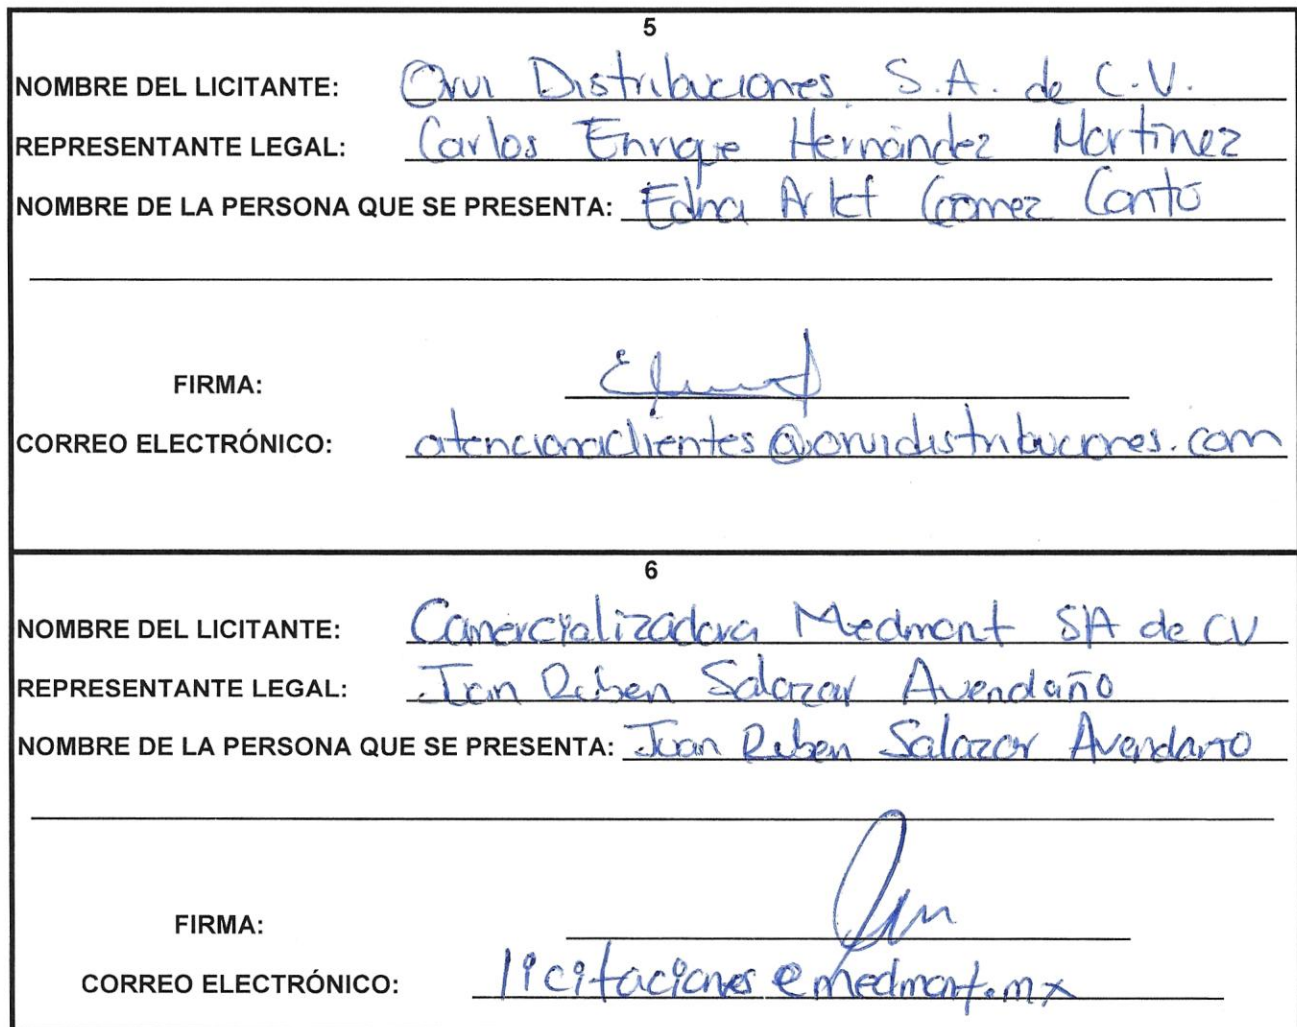 5
NOMBRE DEL LICITANTE: Orvi Distribuciones S.A. de C.V.
REPRESENTANTE LEGAL: Carlos Enrique Hernández Martínez
NOMBRE DE LA PERSONA QUE SE PRESENTA: Edna Arlet Gómez Cantó
FIRMA:
CORREO ELECTRÓNICO: atencionaclientes@orvidistribuciones.com
6
NOMBRE DEL LICITANTE: Comercializadora Medmont SA de CV
REPRESENTANTE LEGAL: Juan Ruben Salazar Avendaño
NOMBRE DE LA PERSONA QUE SE PRESENTA: Juan Ruben Salazar Avendaño
FIRMA:
CORREO ELECTRÓNICO: licitaciones@medmont.mx